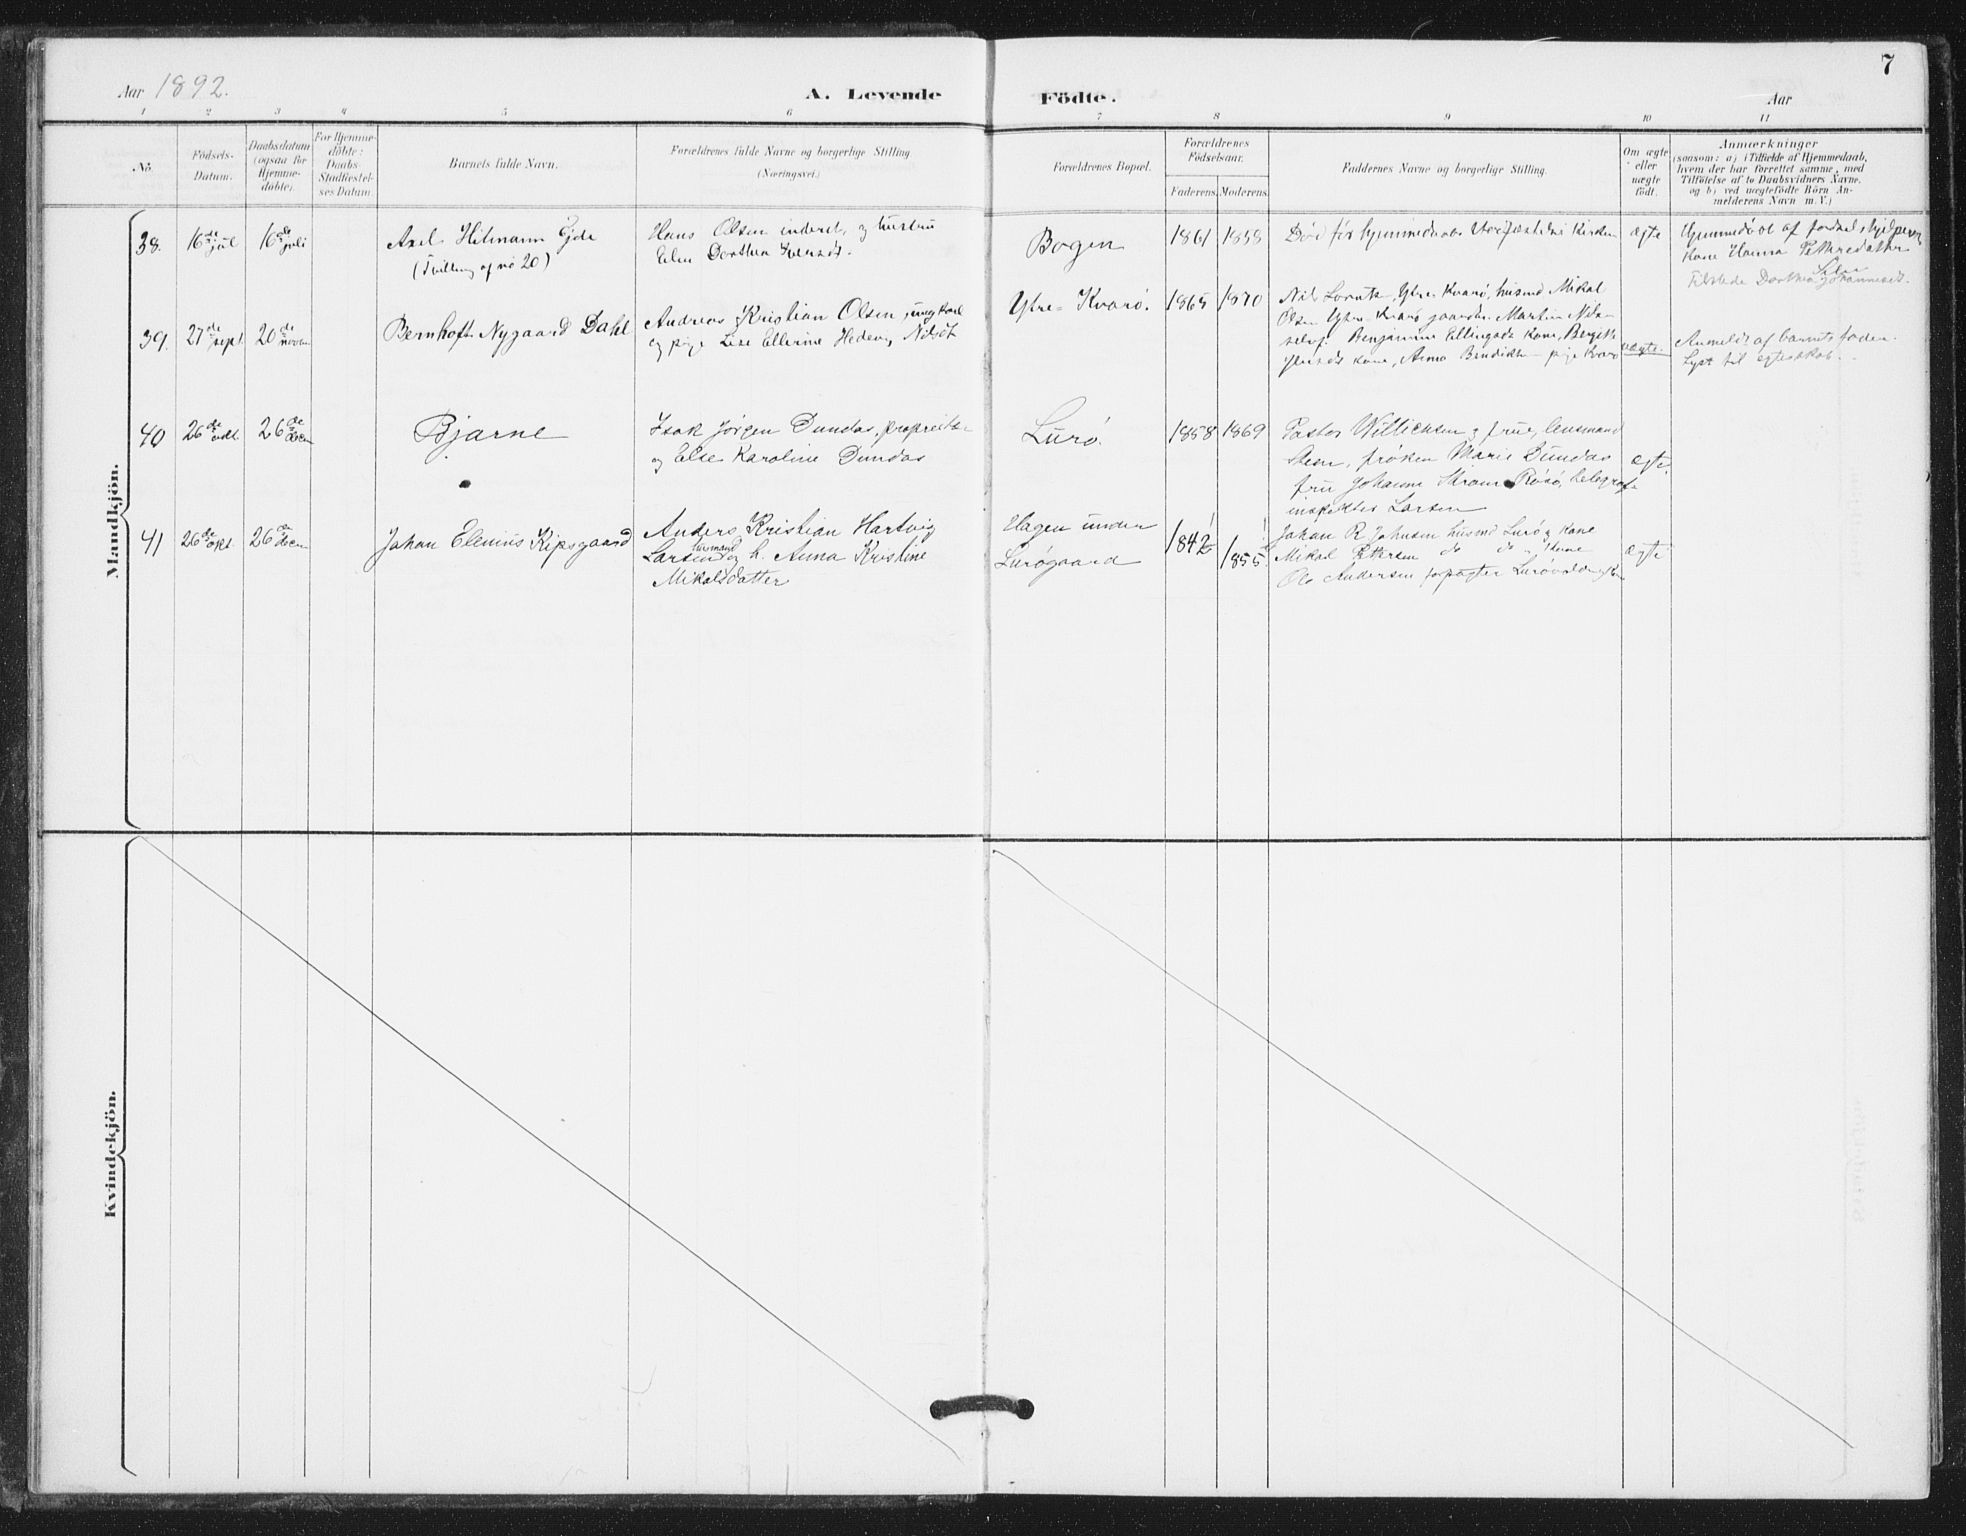 7
Aar 1892. A. Levende Födte. Aar
1 2 3 4 5 6 7 8 9 10 11
No.
Födsels-
Datum.
Daabsdatum
(ogsaa for
Hjemme-
döbte).
For Hjemme-
döbte:
Daabs-
Stadfæstel-
ses Datum.
Barnets fulde Navn.
Forældrenes fulde Navne og borgerlige Stilling
(Næringsvei.)
Forældrenes Bopæl.
Forældrenes
Födselsaar.
Faderens. Moderens.
Faddernes Navne og borgerlige Stilling.
Om ægte
eller
uægte
födt.
Anmærkninger
(saasom: a) i Tilfælde af Hjemmedaab,
hvem der har forrettet samme, med
Tilföielse af to Daabsvidners Navne.
og b) ved uægtefödte Börn An-
melderens Navn m. V.)
Mandkjön.
38.
16de jul
16de juli
Axel Hitmann Ejde
(Tvilling af no 20)
Hans Olsen inderst, og hustru
Elen Dorthea Iversdt.
Bogen
1861
1858
Död før hjemmedaabs Stadfæstelse i Kirken
ægte
Hjemmedöbt af fødselshjelperg
kone Hanna Pettersdatter
Tilstede Dorthea Johannesdt.
39.
27de sept.
20de novem
Bernhoft Nygaard Dahl
Andreas Kristian Olsen, ungkarl
og pige Lise Ellerine Hedevig Nilsdt
Ytre-Kvarö.
1865
1870
Nils Lorntz, Ytre Kvarö, husmd Mikal
Olsen Ytre-Kvarö gaardbr. Martin Nils-
selvf. Benjamine Ellingsdt kone, Bergitte
kone, Anna Bendikte pige Kvarö
uægte.
Anmeldt af barnets fader.
Lyst til egteskab.
40
26de okt
26de decm
Bjarne
Isak Jörgen Dundas, proprietær
og Else Karoline Dundas
Lurö
1858
1869
Pastor Willichsen og frue, lensmand
Steen, fröken Marie Dundas
fru Johanne Ström Rösö, telegraf-
inspektör Larsen
ægte.
41
26de okt.
26de decm
Johan Elenius Kipsgaard
Anders Kristian Hartvig
Larsen husmand og h. Anna Kristine
Mikalsdatter
Hagen under
Lurögaard
1842
1855
Johan R Johnsen husmd Lurö og kone
Mikal Pettersen do do " kone
Ole Andersen forpagter
ægte
Kvindekjön.